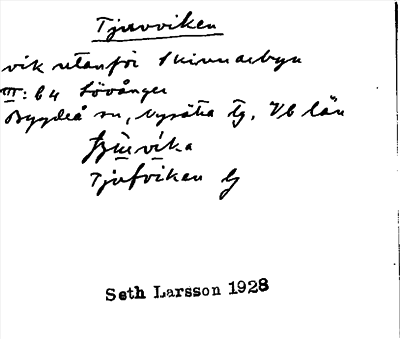 Tjuvviken
vik utanför Skinnarbyn
III: b4 Lövånger
Bygdeå sn, Nysätra tg, Vb län
Tjuvviken
Seth Larsson 1928